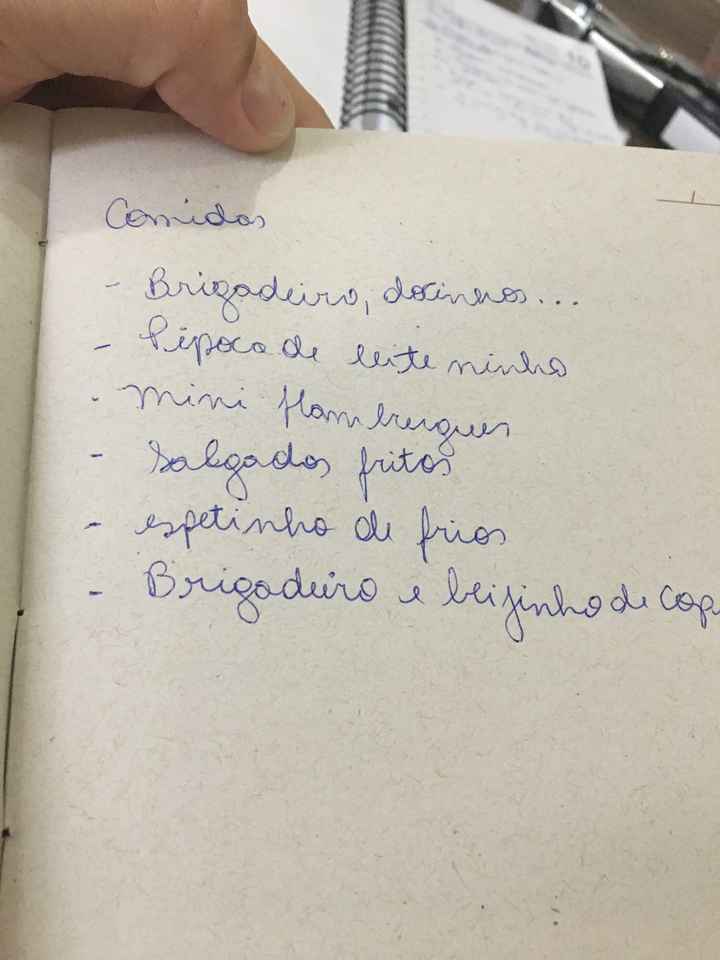 Comidas
- Brigadeiro, docinhos...
- Pipoca de leite ninho
- mini hamburgues
- Salgados fritos
- espetinho de frios
- Brigadeiro e beijinho de cop
10